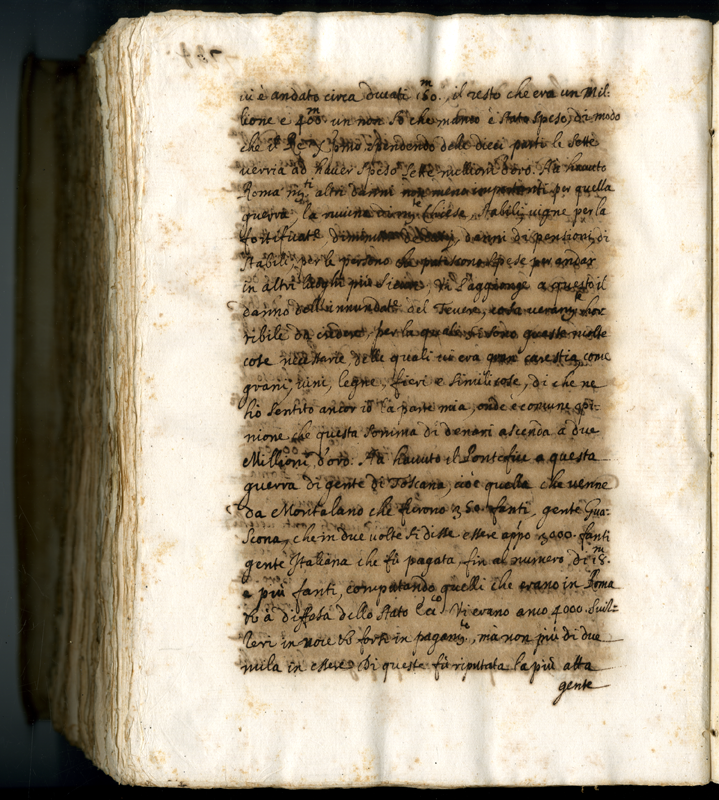 ui è andato circa ducati 150.m, il resto che era un Mil-
lione e 400.m un non so che manco è stato speso, di modo
che il Re x.mo spendendo delle dieci parti le sette
uerria ad hauer speso sette millioni d'oro. Ha hauuto
Roma m.ti altri danni non meno importanti per quella
guerra, la ruuina di m.te Chiese, stabili, uigne per la
fortificat.e diminut.e danni di pensioni, di
stabili, per le persone che spese per andar
in altri luoghi più sicuri, Vi s'aggionge a questo il
danno dell'innundat.e del Teuere, cosa ueram.te hor-
ribile da credere, per la quale si sono queste molte
cose necessarie delle quali ui era gran carestia, come
grani, uini, legne, fieri e simili cose, di che ne
hò sentito ancor io la parte mia, onde è comune opi-
nione che questa somma di denari ascenda a due
Millioni d'oro. Ha hauuto il Pontefice a questa
guerra di gente di Toscana, cioè quella che uenne
da Montalano che furono 350. fanti, gente Gua-
scona, che in due uolte si disse essere app.o 3000. fanti
gente Italiana che fù pagata, fin al numero di 18.m
e più fanti, computando quelli che erano in Roma
ò à diffesa dello Stato Ecc.o Vi erano anco 4000. Suiz-
zeri in uoce ò forse in pagam.to, mà non più di due
mila in essere. Di queste fù riputata la più atta
gente